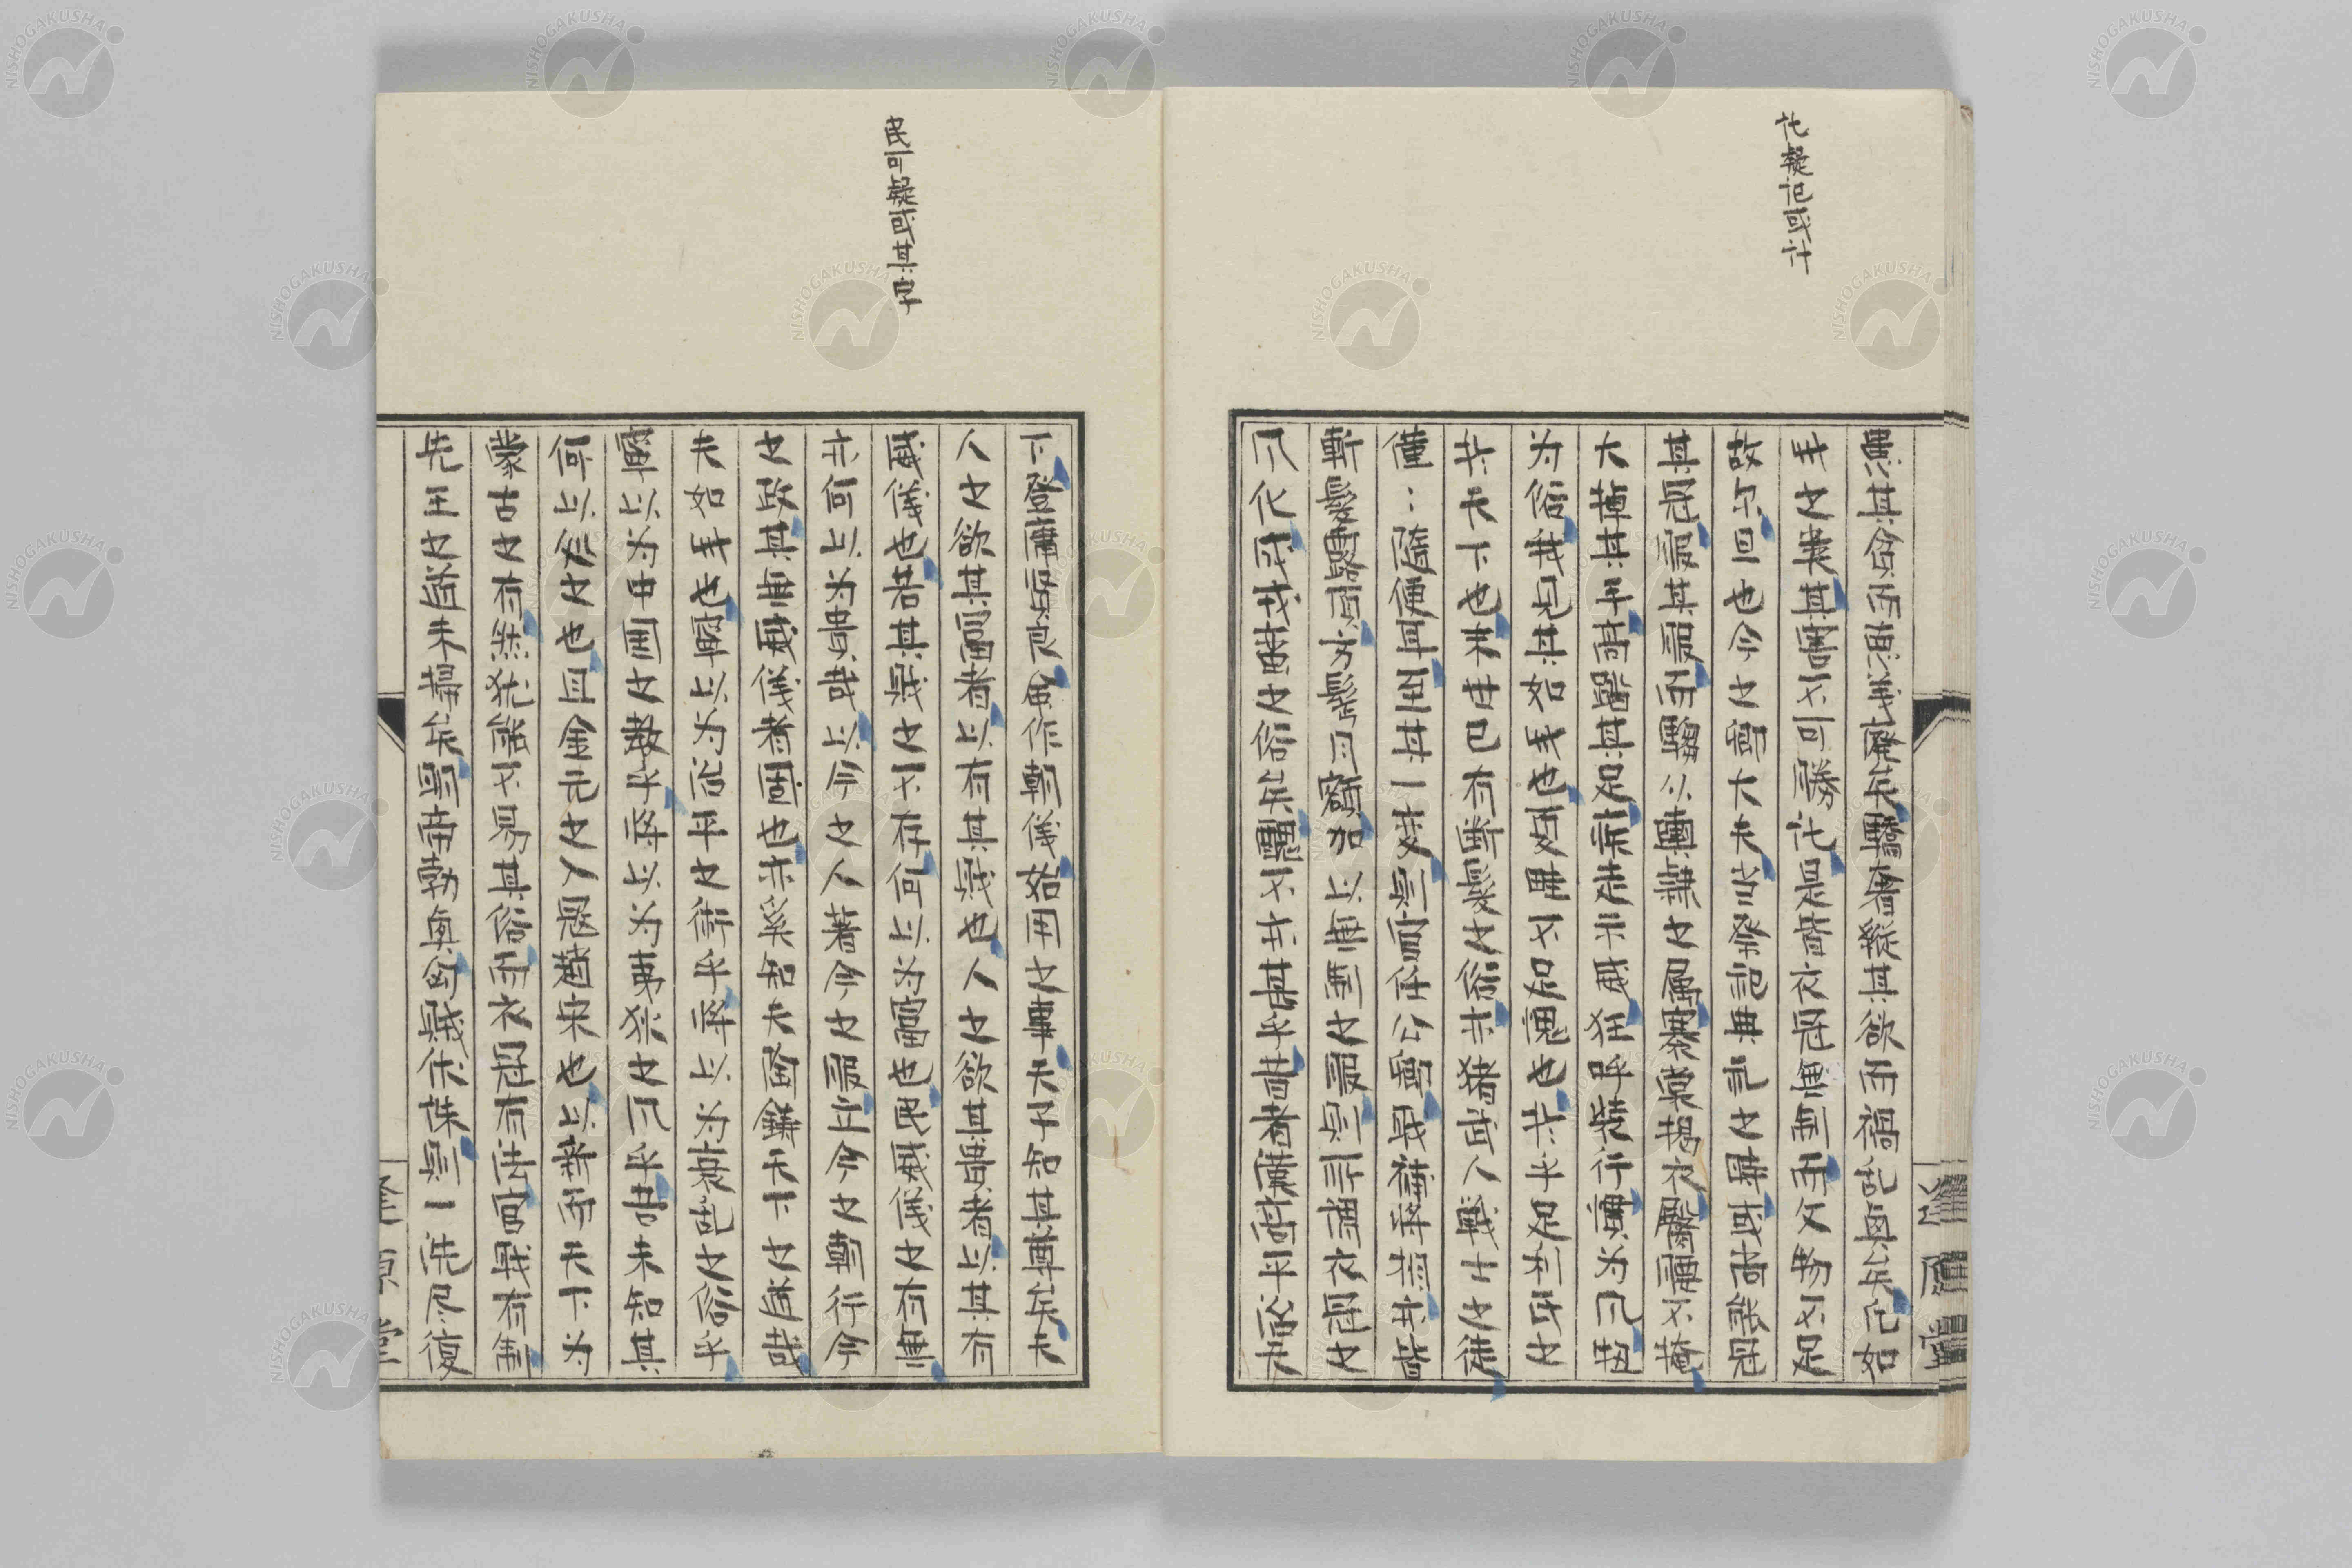 託疑記或計
其貪而輿義廃其驕奢縦其欲而禍乱與矣凡如
我之裳其害不可勝計是昔衣冠無制而文物不足
故尓曰也今之卿大夫皆発記典記之時或当能冠
其冠服其服而騶從輿隷之属褰裳掲衣臀腰不掩
大掉其手高躍其足疾走示威狂呼装行實為凡
為俗我見其如我也反無不足愧也于乎足利氏之
失天下也朱世已有断髪之俗亦猪武人戦士之徒
僅〻随便耳由其一変則官任公卿職補将相亦皆
斬髪露頂方鬢月額加以無制之服則所謂衣冠之
凡化成戎蛮之俗矣醜不亦甚乎昔者廉尚平治
民可疑或其字
下登庸賢良再作朝儀始用之事天子知其尊矣夫
人之欲其富者以有其賎也人之欲其貴者以其有
威儀也若其賎之不存何以為富也民威儀之有無
亦何以為貴哉以今之人著今之服立今之朝行今
之政其無威儀者固也亦奚知夫陶鎔天下之道哉
夫如我也寧以為治平之術乎将以為衰乱之俗乎
寧以為中国之教乎将以為東狄之凡乎君未知其
何以從之也且金元之人冠趙宋也以辮而天下為
蒙古之有然猶能不易其俗而衣冠有法官職有制
先王之道未掃矣明帝勃興凶賊伏誅則一洗尽復